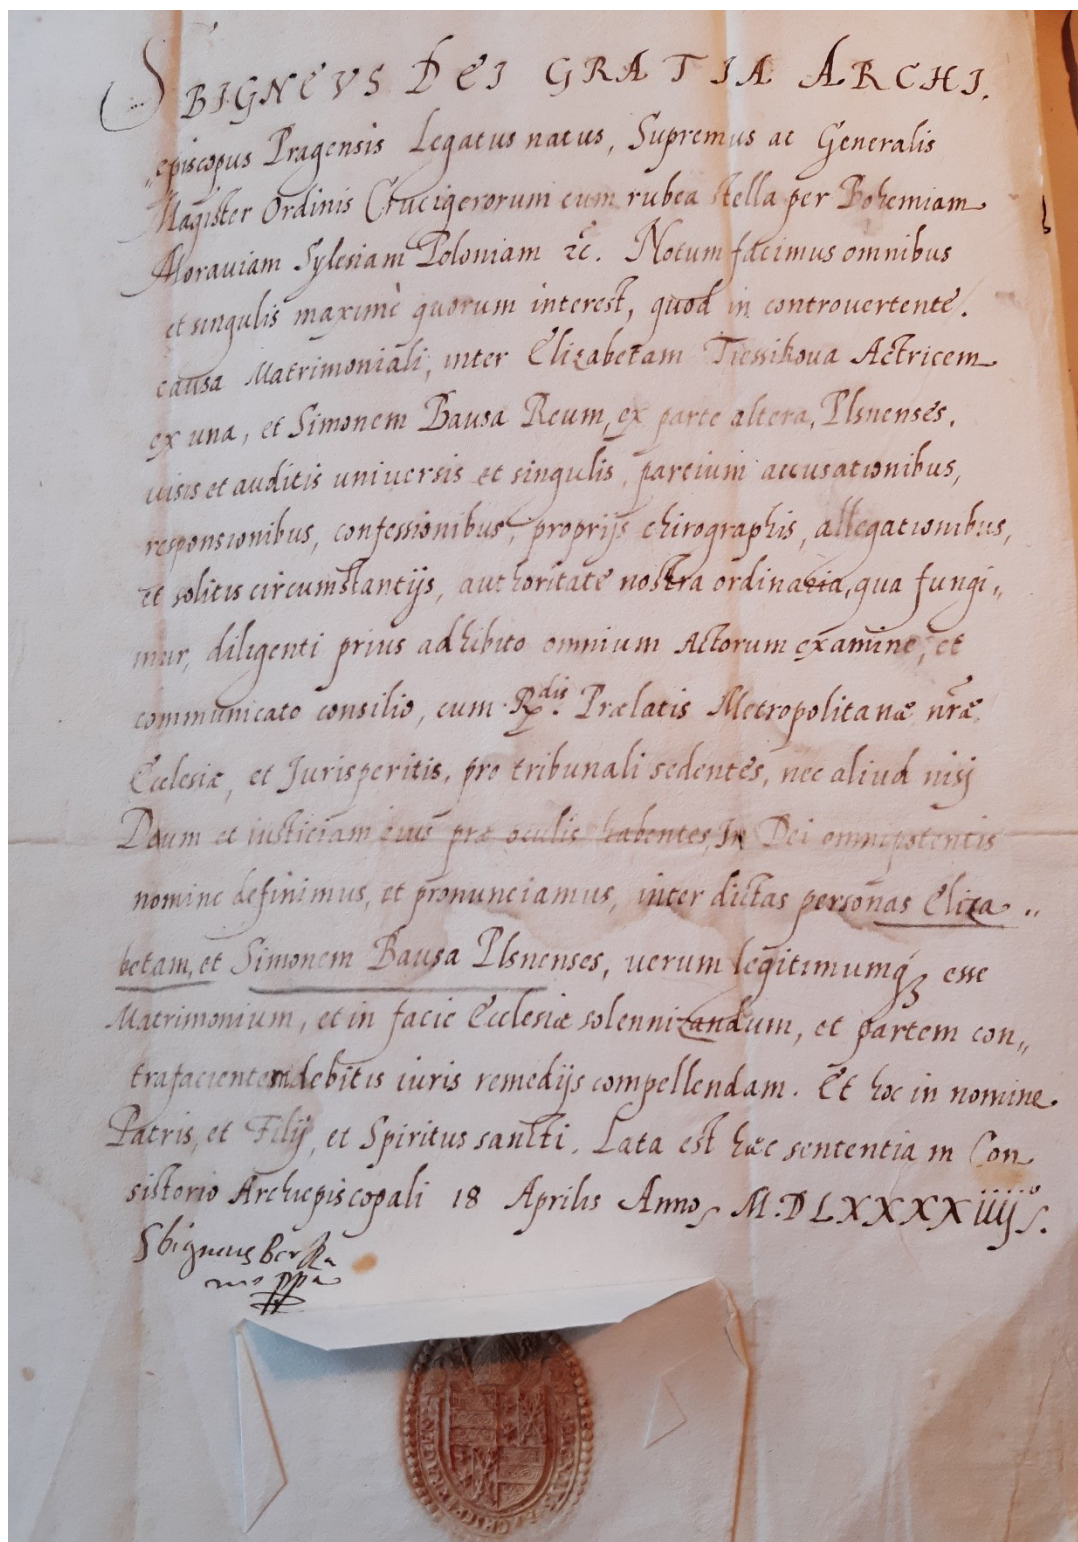 SBIGNEVS DEI GRATIA ARCHI.
episcopus Pragensis Legatus natus, Supremus ac Generalis
Magister Ordinis Crucigerorum cum rubea stella per Bohemiam
Morauiam Sylesiam Poloniam &c. Notum facimus omnibus
et singulis maximè quorum interest, quod in controuertente.
causa Matrimoniali, inter Elizabetam Tiessikoua Actricem
ex una, et Simonem Bausa Reum, ex parte altera, Plsnenses.
uisis et auditis uniuersis et singulis, partium accusationibus,
responsionibus, confessionibus, proprijs chirographis, allegationibus,
et solitis circumstantijs, authoritate nostra ordinaria, qua fungi„
mur, diligenti prius adhibito omnium Actorum examine, et
communicato consilio, cum R.dis Prælatis Metropolitanæ nræ
Ecclesiæ, et Jurisperitis, pro tribunali sedentes, nec aliud nisj
Deum et iusticiam eius præ oculis habentes, In Dei omnipotentis
nomine definimus, et pronunciamus, inter dictas personas Eliza„
betam, et Simonem Bausa Plsnenses, uerum legitimumq₃ esse
Matrimonium, et in facie Ecclesiæ solennizandum, et partem con„
trafacientem debitis iuris remedijs compellendam. Et hoc in nomine
Patris, et Filij, et Spiritus sancti. Lata est hæc sententia in Con
sistorio Archiepiscopali 18 Aprilis Anno M.DLXXXXiiijº.
Sbigneus Berka
mppa